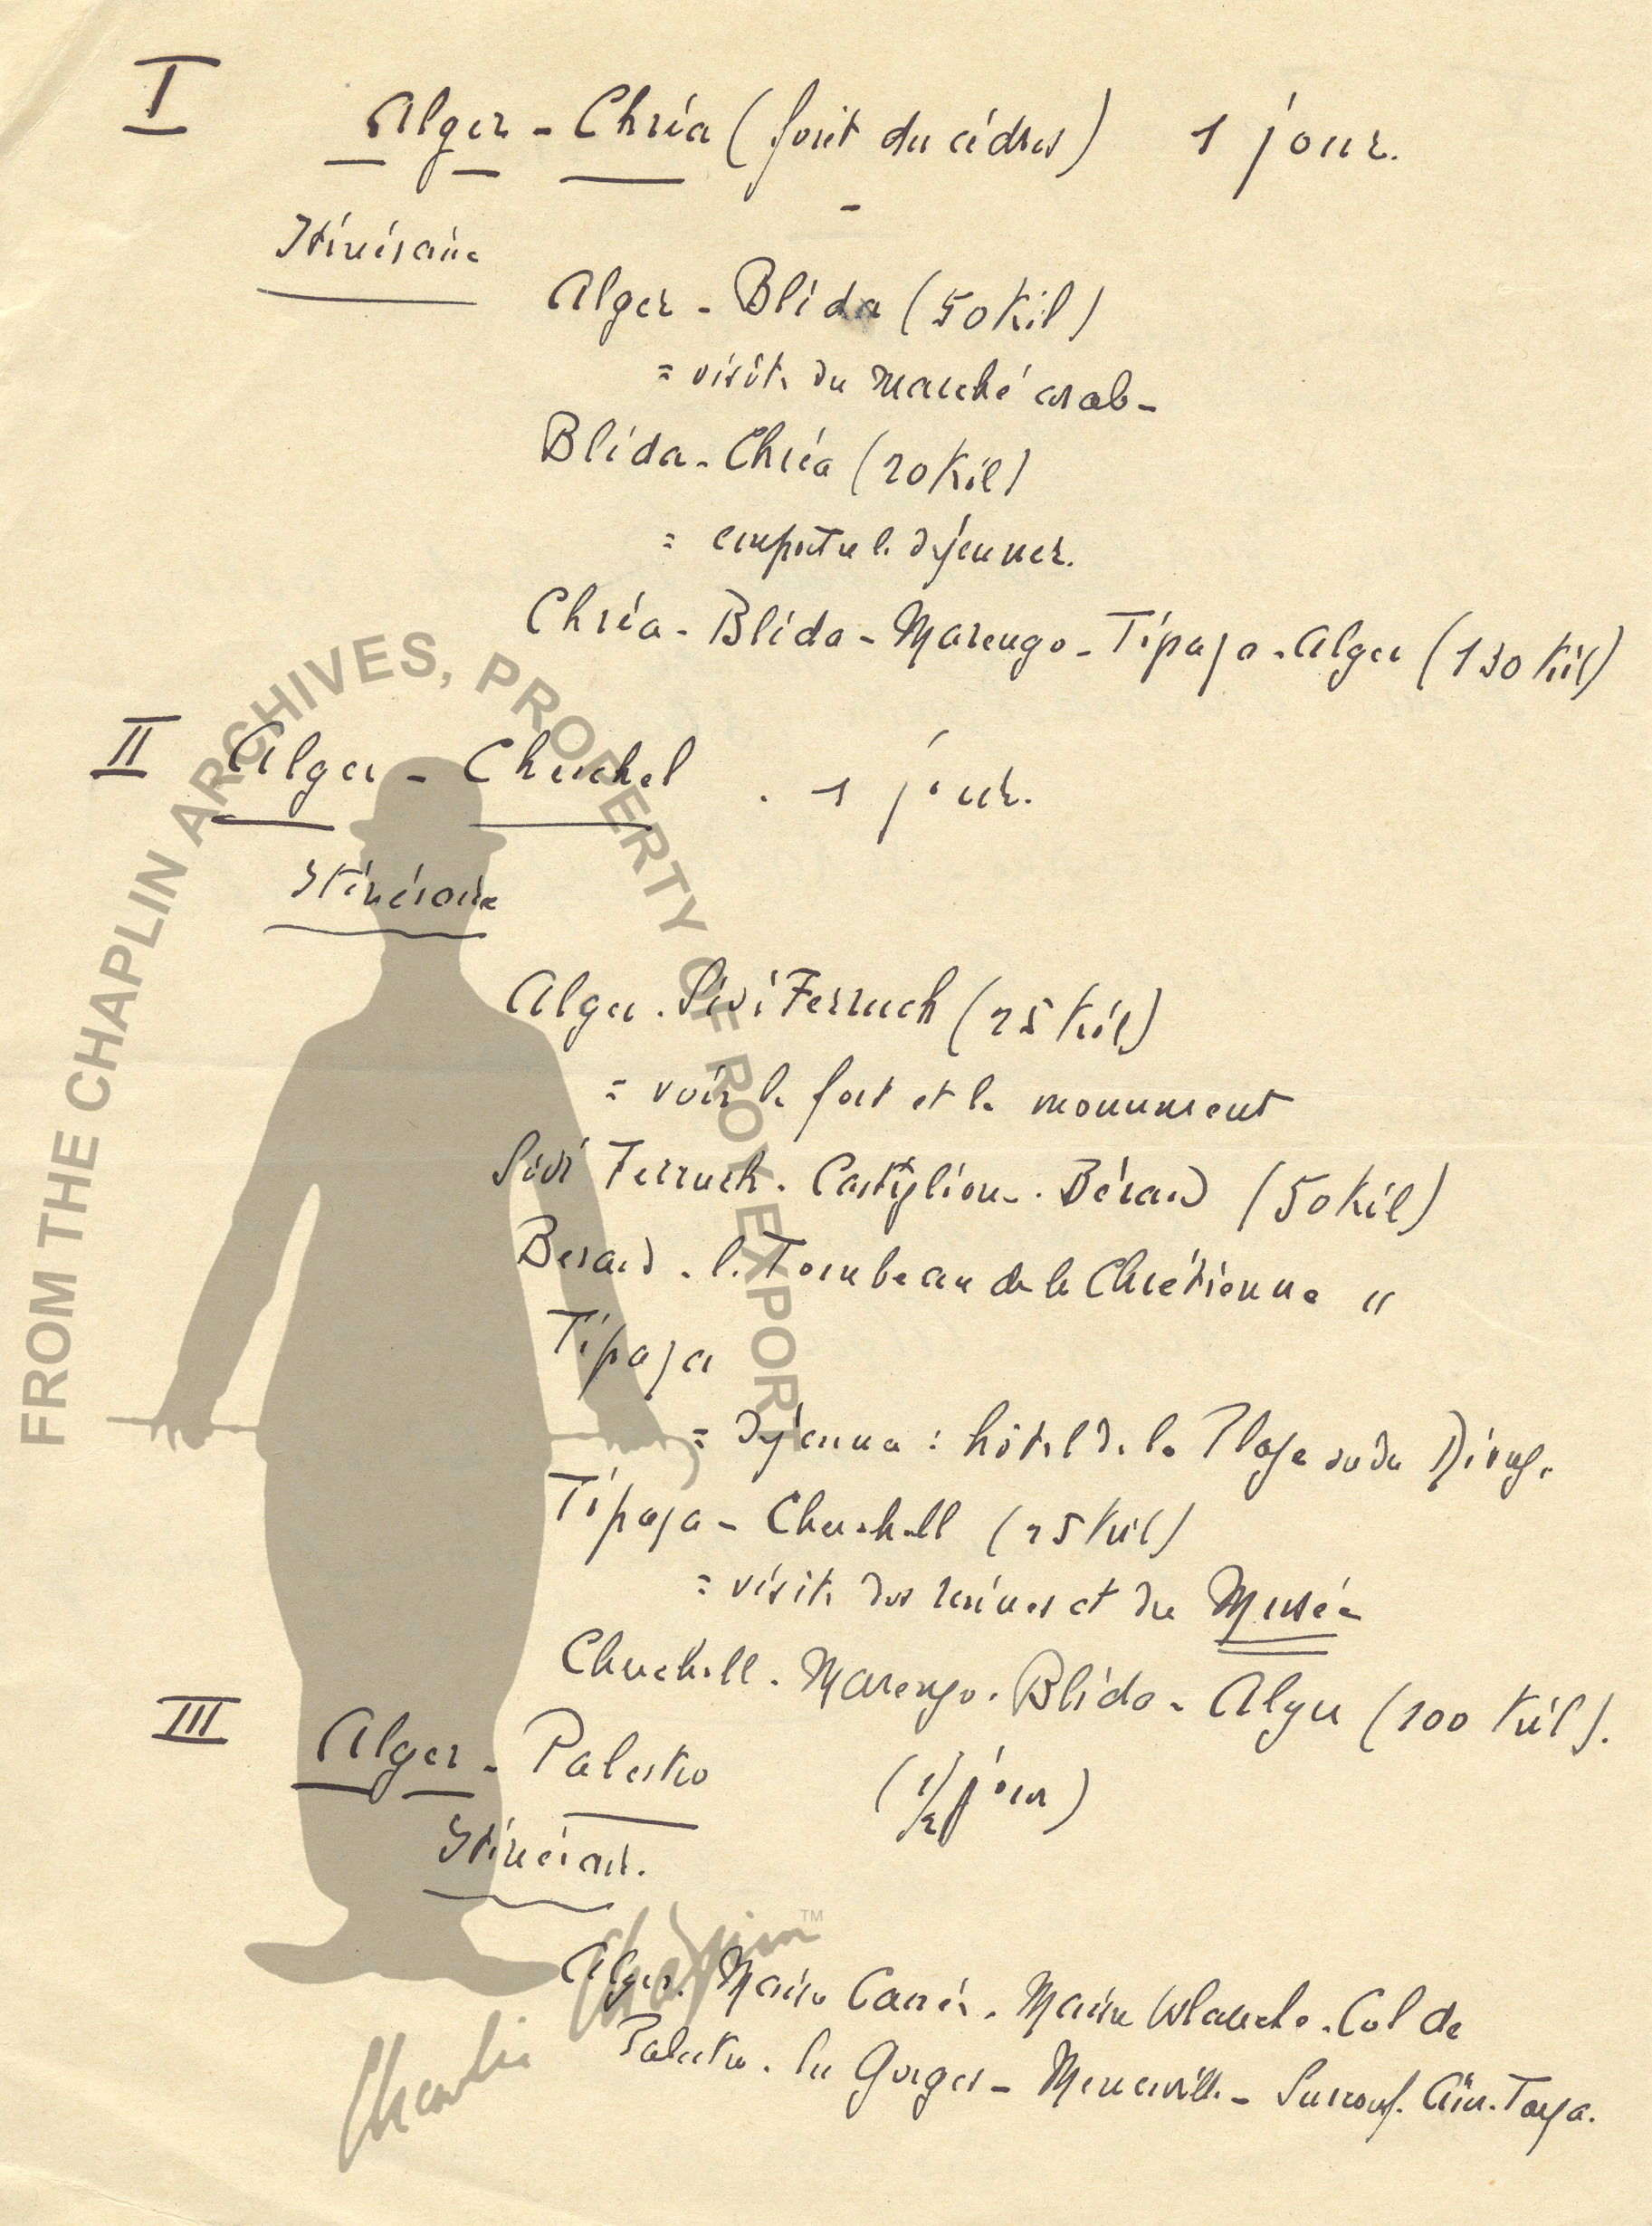 I
Alger - Chréa (forêt de cèdres) 1 jour.
Itinéraire
Alger - Blida (50 Kil)
= visite du marché arabe
Blida - Chréa (20 Kil)
= emporter le déjeuner.
Chréa - Blida - Marengo - Tipaza - Alger (130 Kil)
II Alger - Cherchel . 1 jour.
Itinéraire
Alger. Sidi Ferruch (25 Kil)
= voir le fort et le monument
Sidi Ferruch. Castiglione. Bérard (50 Kil)
Berard. le Tombeau de la Chrétienne "
Tipaza
= déjeuner : hôtel de la Plage ou du
Tipaza - Cherchell (25 Kil)
= visite des ruines et du Musée
Cherchell. Marengo. Blida - Alger (100 Kil).
III Alger - Palestro (1/2 jour)
Itinéraire.
Alger. Maison Carrée. Maison Blanche. Col de
Palestro. les Gorges - Menerville - Surcouf. Aïn-Taya.
FROM THE CHAPLIN ARCHIVES, PROPERTY OF ROY EXPORT
Charlie Chaplin TM